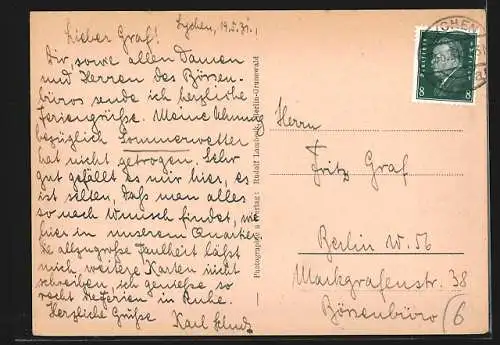 Lychen, 19.5.31.,
Lieber Graf!
Dir, sowie allen Damen
und Herren des Börsen-
büros sende ich herzliche
Feriengrüße. Meine Ahnung
bezüglich Sommerwetter
hat nicht getrogen. Sehr
gut gefällt es mir hier, es
ist selten, daß man alles
so nach Wunsch findet, wie
hier in unserem Quartier.
Die allzugroße Faulheit läßt
mich weitere Karten nicht
schreiben, ich genieße so
recht die Ferien in Ruhe.
Herzliche Grüße
Karl
Photographie u. Verlag: Rudolf Lambeck, Berlin-Grunewald
LYCHEN
8 8
Herrn
Fritz Graf
Berlin W. 56
Markgrafenstr. 38
Börsenbüro (6)